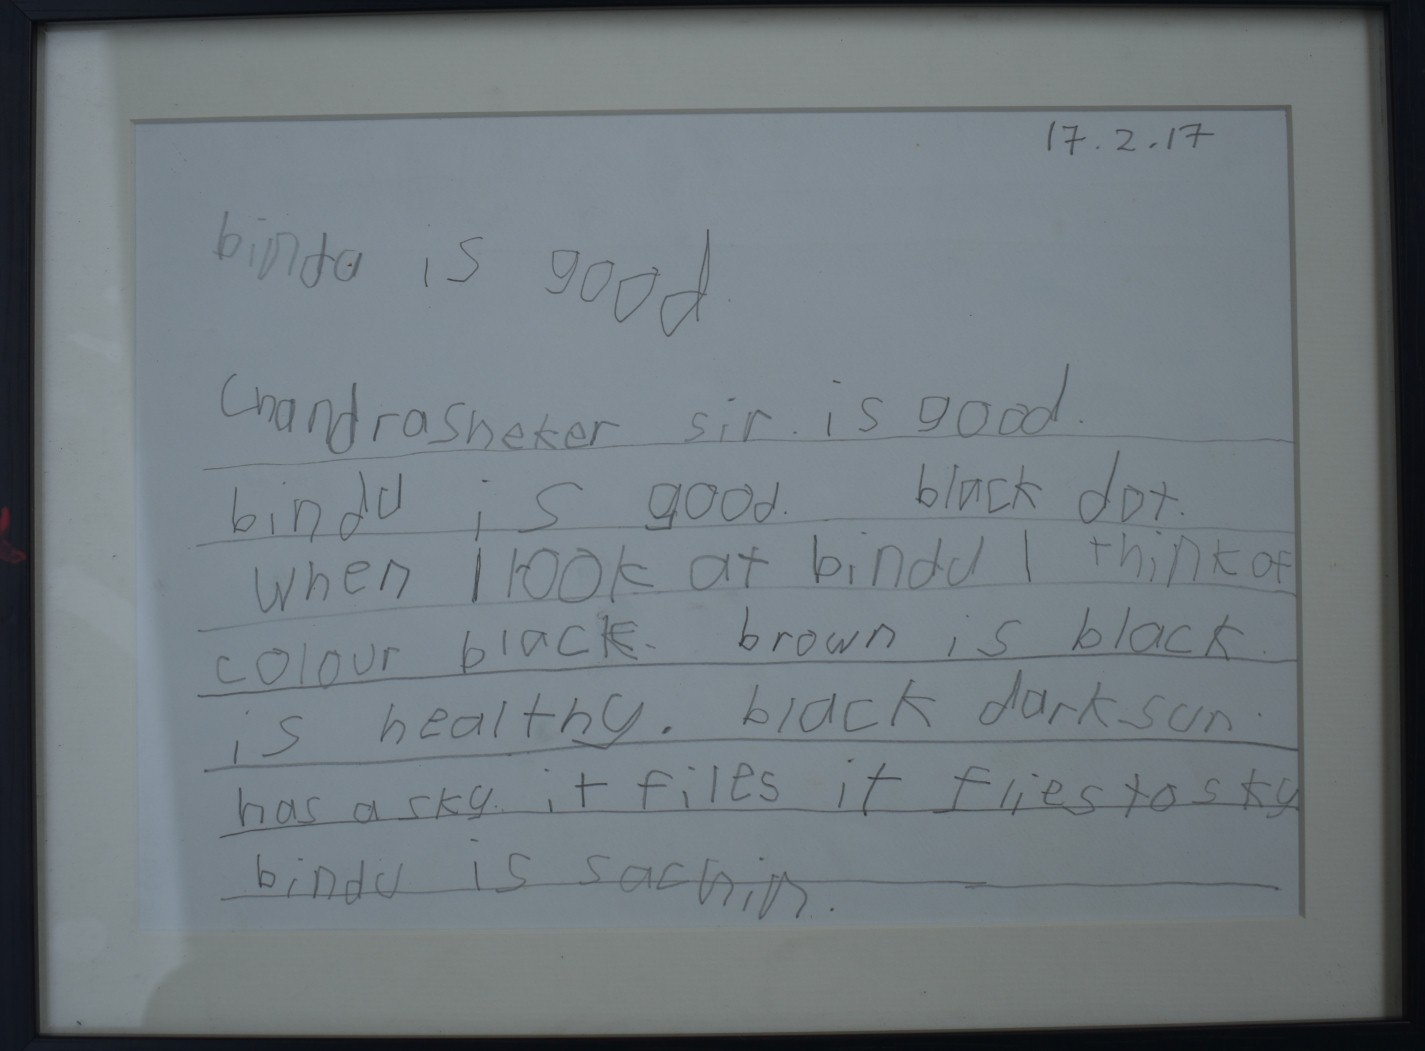 17.2.17
binda is good
Chandrasheker sir. is good.
bindu is good. black dot.
When I look at bindu I think of
colour black. brown is black.
is healthy. black dark sun.
has a sky. it files it flies to sky
bindu is sachin.